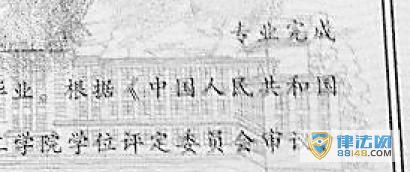 专业完成
毕业。根据《中国人民共和国
工学院学位评定委员会审议
律法网
88148.com